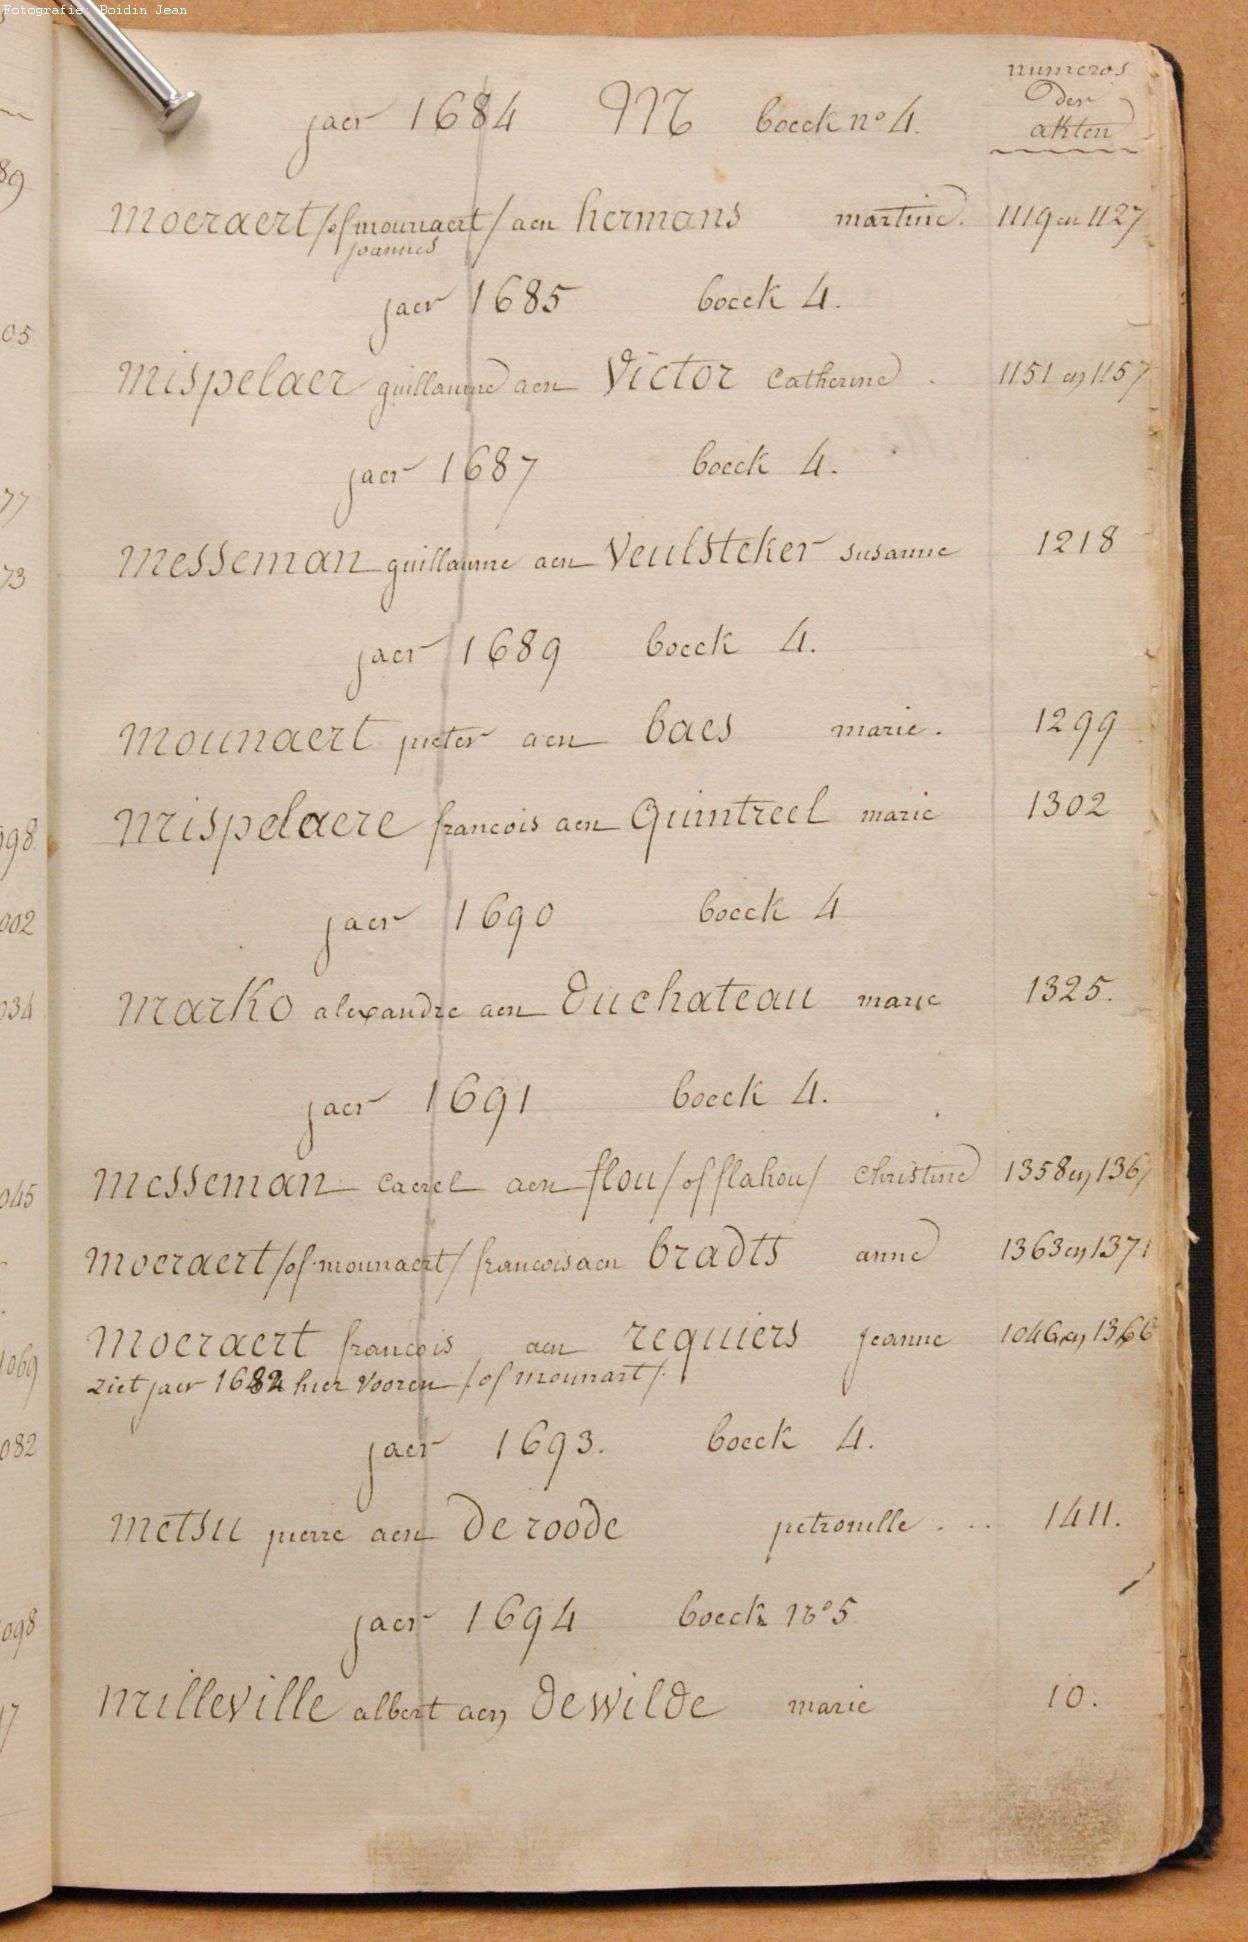 Fotografie: Boidin Jean
numeros
der
akten
jaer 1684 M boeck n° 4.
moeraert /of mounaert/ aen hermans martine. 1119 en 1127
joannes
jaer 1685 boeck 4.
mispelaer guillaume aen Victor catherine. 1151 en 1157
jaer 1687 boeck 4.
messeman guillaume aen Veulsteker susanne 1218
jaer 1689 boeck 4.
mounaert pieter aen baes marie. 1299
mispelaere francois aen Quintreel marie 1302
jaer 1690 boeck 4
marko alexandre aen duchateau marie 1325.
jaer 1691 boeck 4.
messeman caerel aen flou /of flahou/ christine 1358 en 136
moeraert /of mounaert/ francois aen bradts anne 1363 en 1371
moeraert francois aen requiers jeanne 1046 en 1366
ziet jaer 1682 hier vooren /of mounart/.
jaer 1693. boeck 4.
metsu pierre aen de roode petronille . ... 1411.
jaer 1694 boeck n° 5
milleville albert aen dewilde marie 10.
89
05
77
73
098
002
034
045
1069
082
098
17